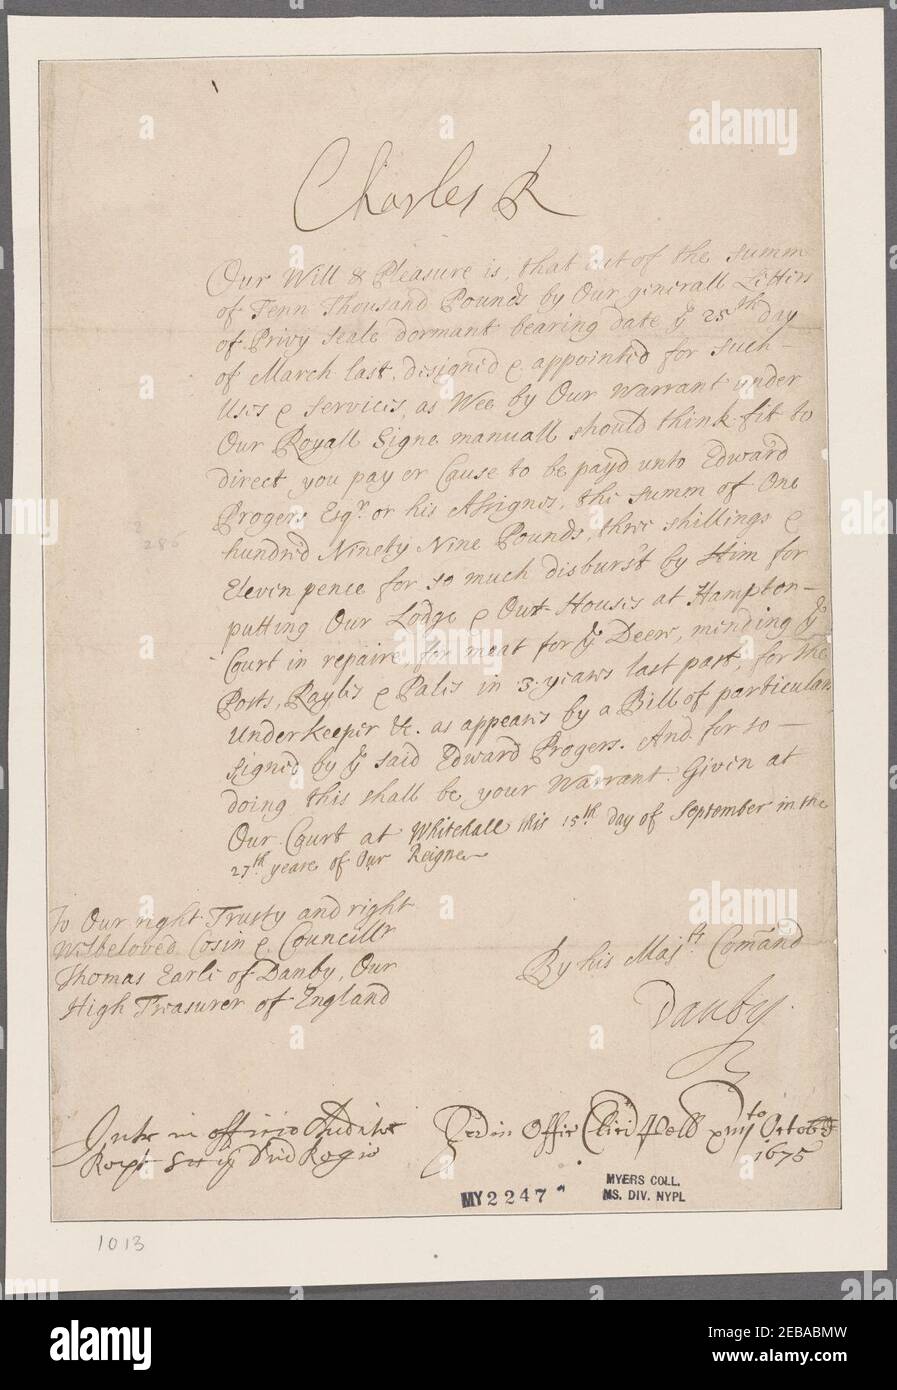 Charles R
Our Will & Pleasure is, that out of the summ
of Tenn Thousand Pounds by Our generall Letters
of Privy seale dormant bearing date ye 25th day
of March last, designed & appointed for such
Uses & services, as Wee by Our Warrant under
Our Royall Signe manuall should think fit to
direct you pay or Cause to be payd unto Edward
Progers Esqr. or his Assignes, the summ of One
hundred Ninety Nine Pounds, three shillings &
Eleven pence for so much disburs't by Him for
putting Our Lodge & Out-Houses at Hampton-
Court in repaire, for meat for ye Deer, mending ye
Posts, Rayles & Pales in .3. years last past, for the
Underkeeper &c. as appears by a Bill of particulars
signed by ye said Edward Progers. And for so
doing this shall be your Warrant. Given at
Our Court at Whitehall this 15th day of September in the
27th yeare of Our Reigne
To Our right Trusty and right
Welbeloved Cosin & Councillr
Thomas Earle of Danby, Our
High Treasurer of England
By his Majts Comand
Danby
in officio
Regis
Offic Pell Octobr
1675
MY2247
MYERS COLL.
MS. DIV. NYPL
286
1013
alamy
Image ID: 2EBABMW
www.alamy.com